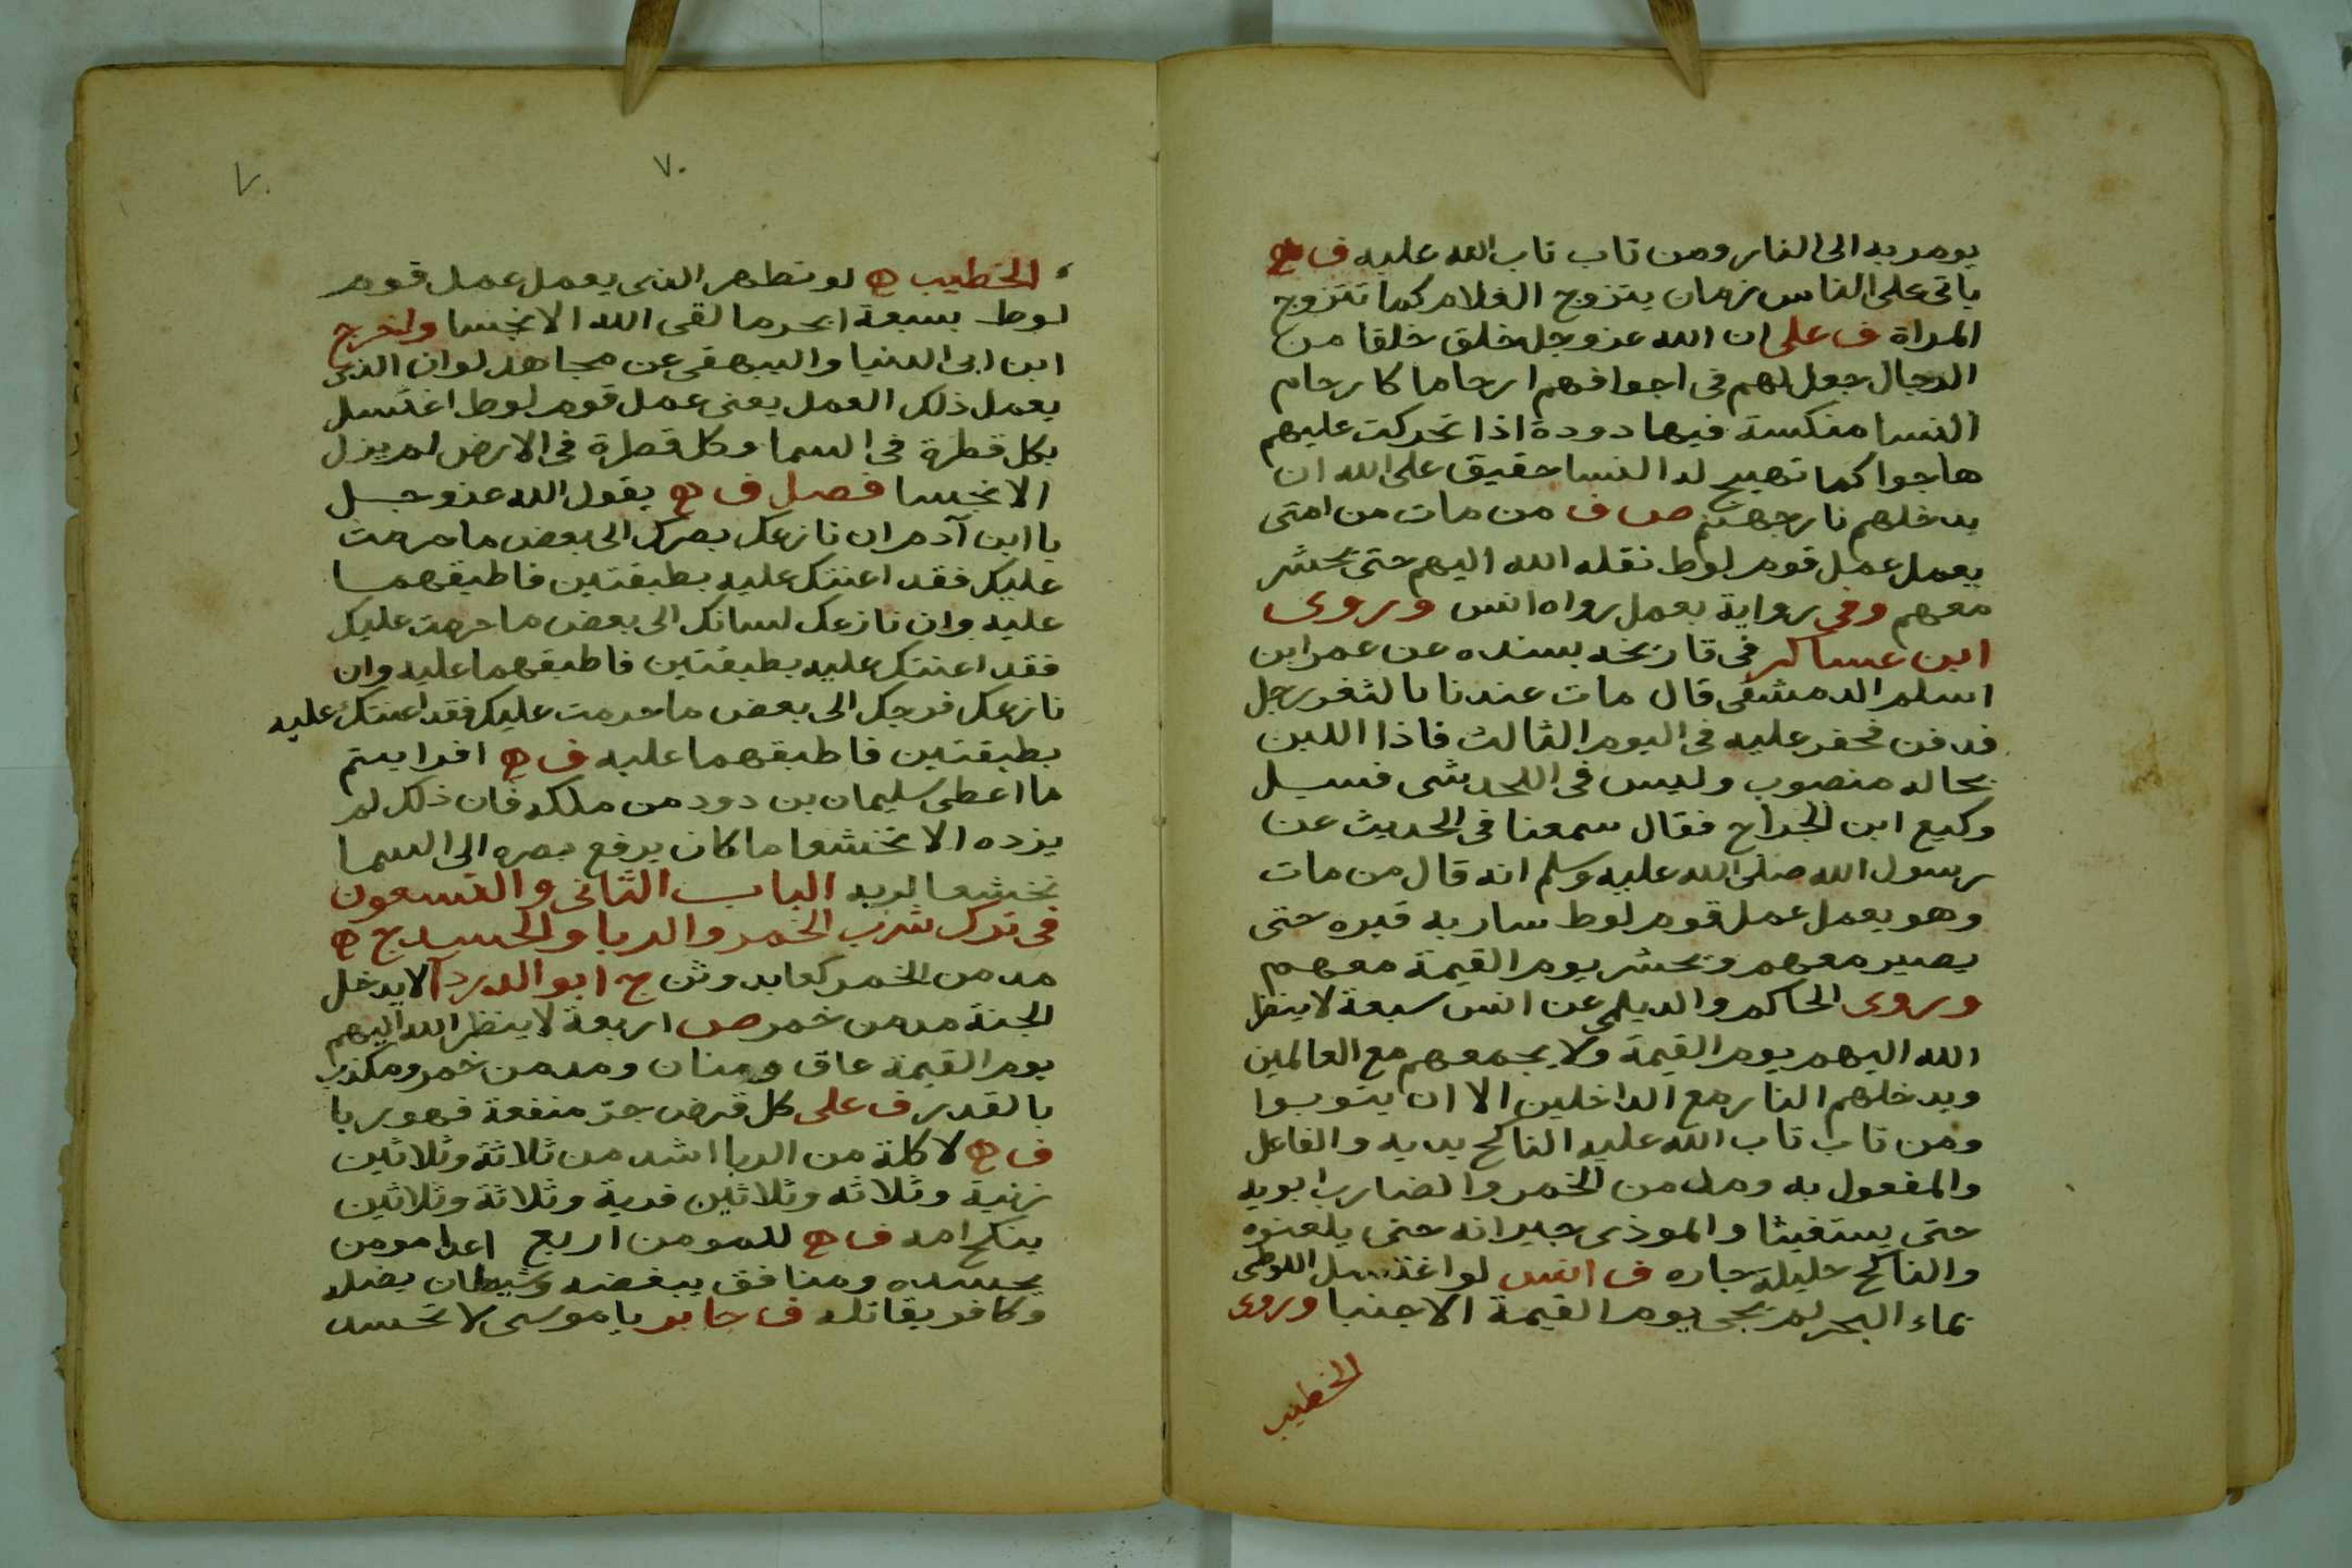 يومر به الى النار ومن تاب تاب الله عليه ف ه
ياتى على الناس زمان يتزوج الغلام كما تتزوج
المراة ف على ان الله عز وجل خلق خلقا من
الرجال جعل لهم فى اجوافهم ارحاما كارحام
النسا منكسة فيها دودة اذا تحركت عليهم
هاجوا كما تهيج له النسا حقيق على الله ان
يدخلهم نار جهنم ص ف من مات من امتى
يعمل عمل قوم لوط نقله الله اليهم حتى يحشر
معهم وفى رواية يعمل رواه انس وروى
ابن عساكر فى تاريخه بسنده عن عمر ابن
اسلم الدمشقى قال مات عندنا بالثغر رجل
فدفن فحفر عليه فى اليوم الثالث فاذا اللبن
بحاله منصوب وليس فى اللحد شى فسيل
وكيع ابن الجراح فقال سمعنا فى الحديث عن
رسول الله صلى الله عليه وسلم انه قال من مات
وهو يعمل عمل قوم لوط ساربه قبره حتى
يصير معهم ويحشر يوم القيمة معهم
وروى الحاكم والديلمى عن انس سبعة لا ينظر
الله اليهم يوم القيمة ولا يجمعهم مع العالمين
ويدخلهم النار مع الداخلين الا ان يتوبوا
ومن تاب تاب الله عليه الناكح بيديه والفاعل
والمفعول به ومدمن الخمر والضارب ابويه
حتى يستغيثا والموذى جيرانه حتى يلعنوه
والناكح حليلة جاره ف انس لو اغتسل اللوطى
بماء البحر لم يجى يوم القيمة الا جنبا وروى
الخطيب
٧٠
٧٠
الخطيب ه لو تطهر الذى يعمل عمل قوم
لوط بسبعة ابحر ما لقى الله الا نجسا واخرج
ابن ابى الدنيا والبيهقى عن مجاهد لو ان الذى
يعمل ذلك العمل يعنى عمل قوم لوط اغتسل
بكل قطرة فى السما وكل قطرة فى الارض لم يزل
الا نجسا فصل ف ه يقول الله عز وجل
يا ابن آدم ان نازعك بصرك الى بعض ما حرمت
عليك فقد اعنتك عليه بطبقتين فاطبقهما
عليه وان نازعك لسانك الى بعض ما حرمت عليك
فقد اعنتك عليه بطبقتين فاطبقهما عليه وان
نازعك فرجك الى بعض ما حرمت عليك فقد اعنتك عليه
بطبقتين فاطبقهما عليه ف ه افرايتم
ما اعطى سليمان بن دود من ملكه فان ذلك لم
يزده الا تخشعا ما كان يرفع بصره الى السما
تخشعا لربه الباب الثانى والتسعون
فى ترك شرب الخمر والربا والحسد ج ه
مدمن الخمر كعابد وثن ج ابو الدردآ لا يدخل
الجنة مدمن خمر ص اربعة لا ينظر الله اليهم
يوم القيمة عاق ومنان ومدمن خمر ومكذب
بالقدر ف على كل قرض جرّ منفعة فهو ربا
ف ه لاكلة من الربا اشد من ثلاثة وثلاثين
زنية وثلاثه وثلاثين فدية وثلاثة وثلاثين
ينكح امه ف ه للمومن اربع اعدا مومن
يحسده ومنافق يبغضه وشيطان يضله
وكافر يقاتله ف جابر يا موسى لا تحسد